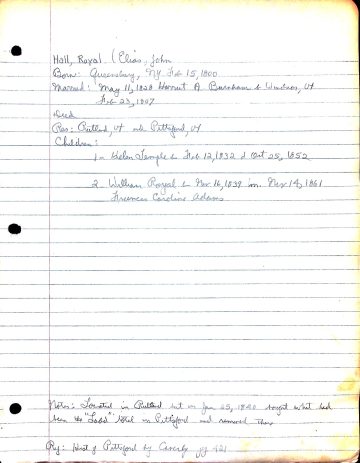 Hall, Royal (Elias, John
Born: Queensbury, NY Feb 15, 1800
Married: May 11, 1828 Harriet A Burnham b Windsor, Vt
Feb 23, 1807
Died
Res: Rutland, Vt Pittsford, Vt
Children:
1 - Helen Temple b Feb 12, 1832 d Oct 25, 1852
2 William Royal b Nov 16, 1839 m. Nov 14, 1861
Frances Caroline Adams
Notes: Located in Rutland but on Jan 25, 1840 bought what had
been the "Ladd" Hotel in Pittsford and removed there
Ref: Hist of Pittsford by Caverly pg 421